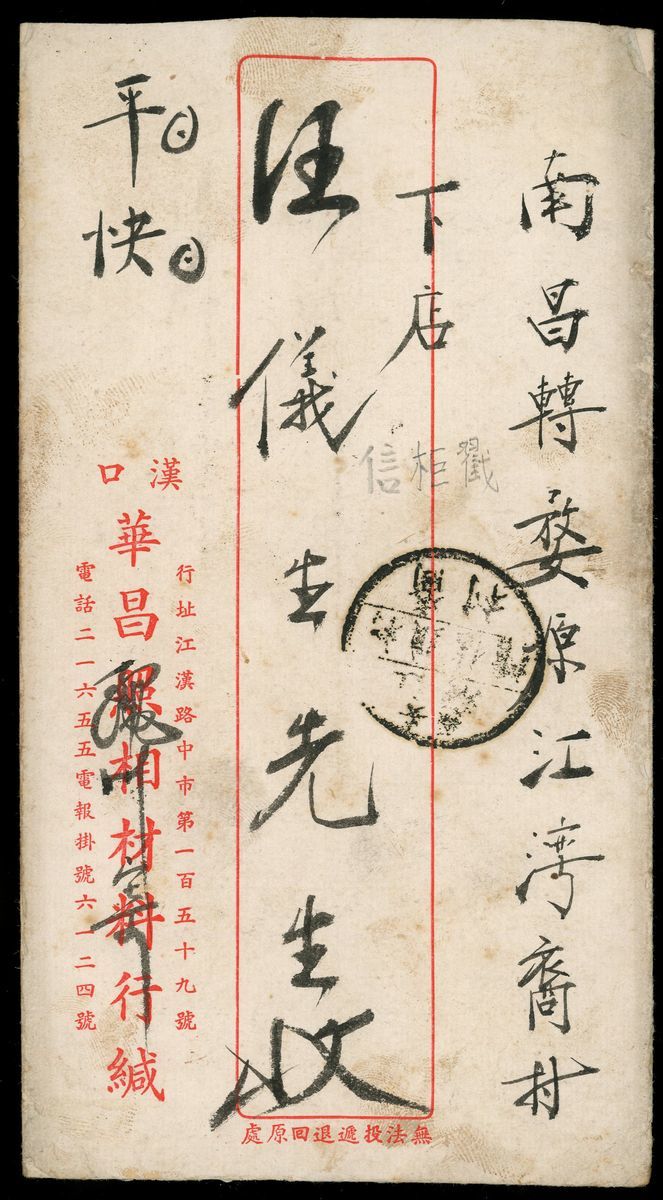 南昌轉婺源江湾裔村
下店
汪儀生先生收
平
快
信柜戳
漢口
華昌照相材料行緘
行址江漢路中市第一百五十九號
電話二一六五五電報掛號六一二四號
無法投遞退回原處